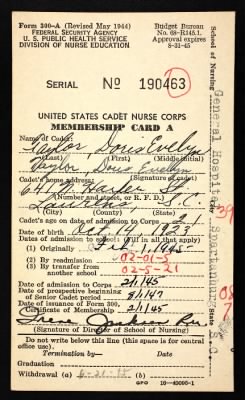 Form 300-A (Revised May 1944)
FEDERAL SECURITY AGENCY
U. S. PUBLIC HEALTH SERVICE
DIVISION OF NURSE EDUCATION
Budget Bureau
No. 68-R145.1.
Approval expires
8-31-45
SERIAL No 190463
UNITED STATES CADET NURSE CORPS
MEMBERSHIP CARD A
Taylor, Doris Evelyn
(Last) (First) (Middle initial)
Taylor, Doris Evelyn
Cadet's name (Signature of cadet)
641 N. Harper St.
(Number and street, or R. F. D.)
Laurens S.C.
(City) (County) (State)
Cadet's age on date of admission to Corps 21
Date of birth Oct. 14, 1923
Dates of admission to school (Fill in all that apply)
(1) Originally as
(2) By readmission 02-01-5
(3) By transfer from another school 02-5-21
Date of admission to Corps 2/1/45
Date of prospective beginning of Senior Cadet period
Date of Form 300, Certificate of Membership 2/1/45
Irene
(Signature of Director of School of Nursing)
Do not write below this line (this space is for central office use).
Termination by Date
Graduation
Withdrawal (a)
GPO 16-40005-1
School of Nursing
General Hospital
Spartanburg, S.C.
39
08